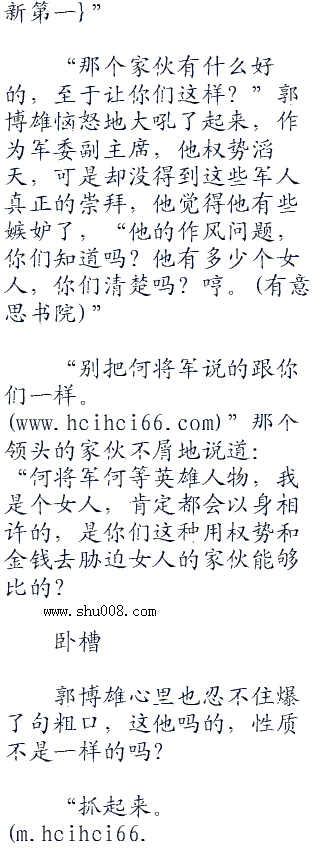 新第一}”
“那个家伙有什么好
的，至于让你们这样？”郭
博雄恼怒地大吼了起来，作
为军委副主席，他权势滔
天，可是却没得到这些军人
真正的崇拜，他觉得他有些
嫉妒了，“他的作风问题，
你们知道吗？他有多少个女
人，你们清楚吗？哼。(有意
思书院)”
“别把何将军说的跟你
们一样。
(www.hcihci66.com)”那个
领头的家伙不屑地说道：
“何将军何等英雄人物，我
是个女人，肯定都会以身相
许的，是你们这种用权势和
金钱去胁迫女人的家伙能够
比的？
www.shu008.com
卧槽
郭博雄心里也忍不住爆
了句粗口，这他吗的，性质
不是一样的吗？
“抓起来。
(m.hcihci66.